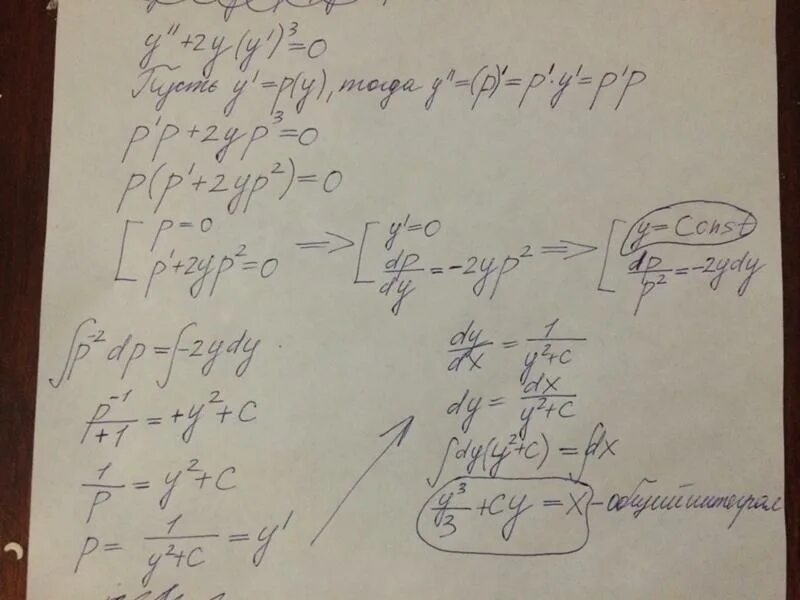 y'' + 2y(y')³ = 0
Пусть y' = p(y), тогда y'' = (p)' = p'·y' = p'p
p'p + 2yp³ = 0
p(p' + 2yp²) = 0
[ p = 0 ⟹ [ y' = 0 ⟹ [ y = Const
p' + 2yp² = 0 dp/dy = -2yp² dp/p² = -2ydy
∫p⁻²dp = ∫-2ydy
p⁻¹/+1 = +y² + C
1/p = y² + C
p = 1/(y²+C) = y'
dy/dx = 1/(y²+C)
dy = dx/(y²+C)
∫dy(y²+C) = ∫dx
y³/3 + Cy = x - общий интеграл